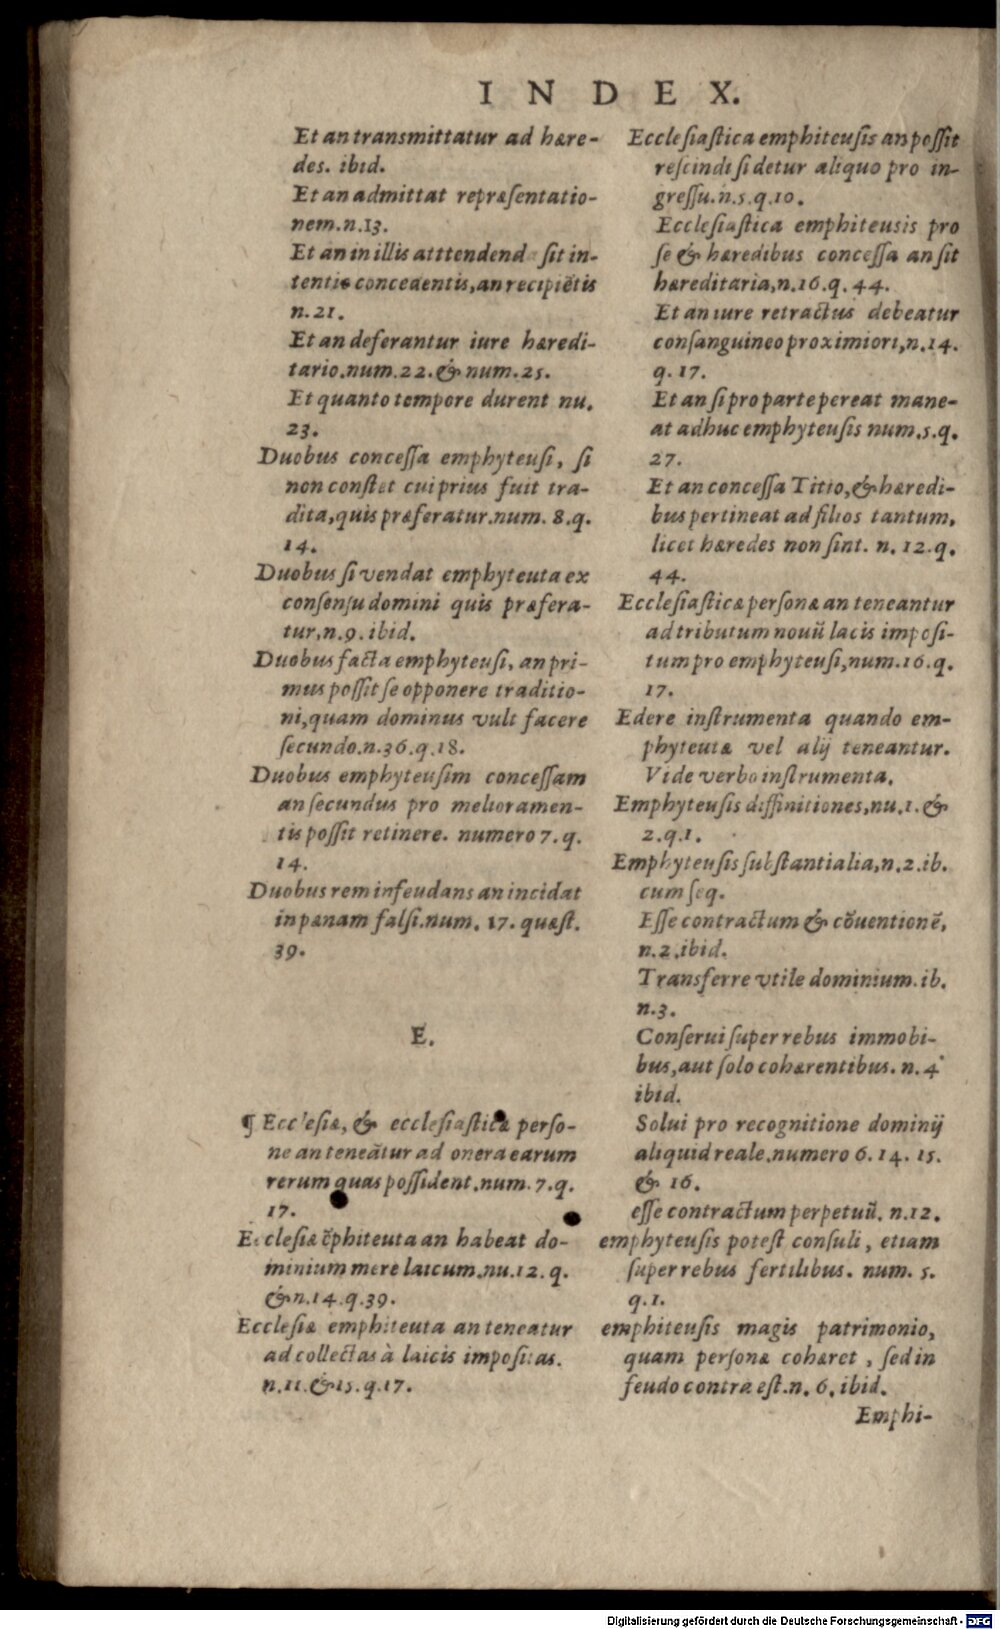 INDEX.
Et an transmittatur ad hære-
des. ibid.
Et an admittat repræſentatio-
nem.n.13.
Et an in illis atttendend ſit in-
tentio concedentis, an recipiẽtis
n.21.
Et an deferantur iure hæredi-
tario.num.22.& num.25.
Et quanto tempore durent nu.
23.
Duobus conceſſa emphyteuſi, ſi
non conſtet cui prius fuit tra-
dita, quis præferatur.num. 8.q.
14.
Duobus ſi vendat emphyteuta ex
conſenſu domini quis præfera-
tur, n.9. ibid.
Duobus facta emphyteuſi, an pri-
mus poſſit ſe opponere traditio-
ni, quam dominus vult facere
ſecundo.n.36.q.18.
Duobus emphyteuſim conceſſam
an ſecundus pro melioramen-
tis poſſit retinere. numero 7. q.
14.
Duobus rem infeudans an incidat
in pœnam falſi.num. 17. quæſt.
39.
E.
¶ Eccleſiæ, & eccleſiaſticæ perſo-
ne an teneãtur ad onera earum
rerum quas poſſident.num. 7.q.
17.
Eccleſiæ ẽphiteuta an habeat do-
minium mere laicum.nu.12. q.
& n.14.q.39.
Eccleſiæ emphiteuta an teneatur
ad collectas à laicis impoſitas.
n.11.& 15.q.17.
Eccleſiaſtica emphiteuſis an poſſit
reſcindi ſi detur aliquo pro in-
greſſu.n.5.q.10.
Eccleſiaſtica emphiteusis pro
ſe & hæredibus conceſſa an ſit
hæreditaria, n.16.q. 44.
Et an iure retractus debeatur
conſanguineo proximiori, n.14.
q. 17.
Et an ſi pro parte pereat mane-
at adhuc emphyteuſis num.5.q.
27.
Et an conceſſa Titio, & hæredi-
bus pertineat ad filios tantum,
licet hæredes non ſint. n. 12.q.
44.
Eccleſiaſticæ perſonæ an teneantur
ad tributum nouũ lacis impoſi-
tum pro emphyteuſi, num.16.q.
17.
Edere inſtrumenta quando em-
phyteutæ vel alij teneantur.
Vide verbo inſtrumenta.
Emphyteuſis diffinitiones, nu.1. &
2.q.1.
Emphyteuſis ſubſtantialia, n.2.ib.
cum ſeq.
Eſſe contractum & cõuentionẽ,
n.2.ibid.
Transferre vtile dominium. ib.
n.3.
Conſerui ſuper rebus immobi-
bus, aut ſolo cohærentibus. n. 4
ibid.
Solui pro recognitione dominij
aliquid reale.numero 6. 14. 15.
& 16.
eſſe contractum perpetuũ. n.12.
emphyteuſis poteſt conſuli, etiam
ſuper rebus fertilibus. num. 5.
q.1.
emphiteuſis magis patrimonio,
quam perſonæ cohæret, ſed in
feudo contra eſt.n. 6. ibid.
Emphi-
Digitalisierung gefördert durch die Deutsche Forschungsgemeinschaft - DFG